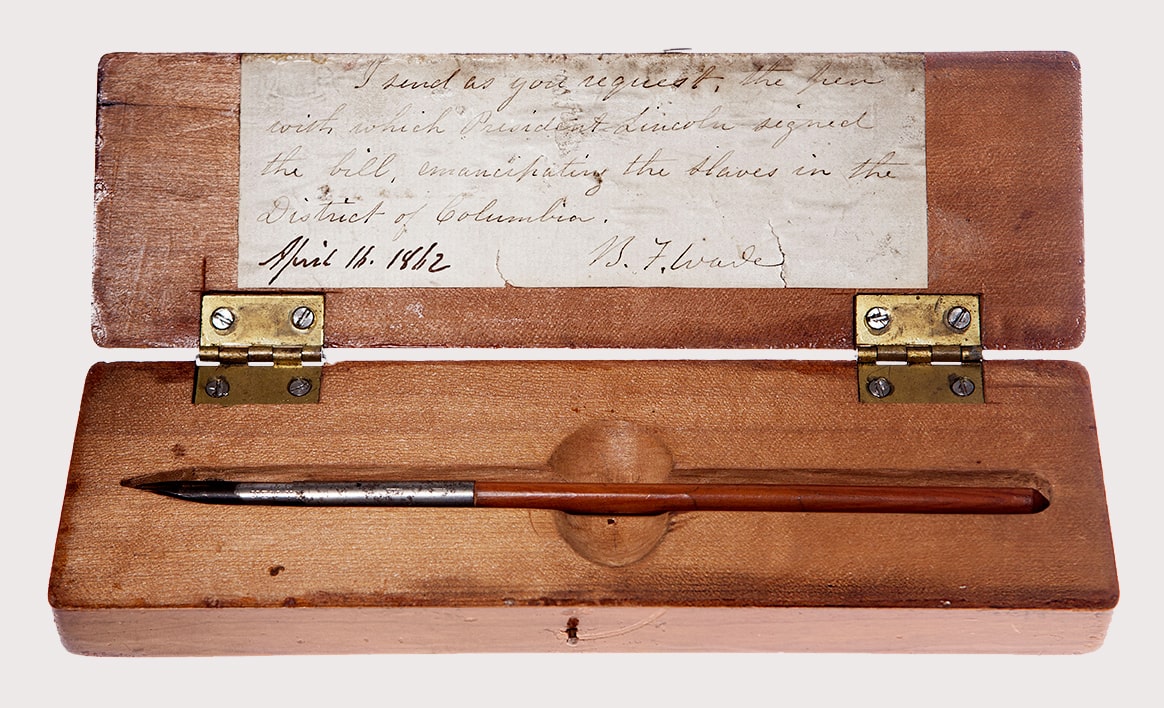 I send as you request, the pen
with which President Lincoln signed
the bill, emancipating the slaves in the
District of Columbia.
April 16. 1862 B. F. Wade